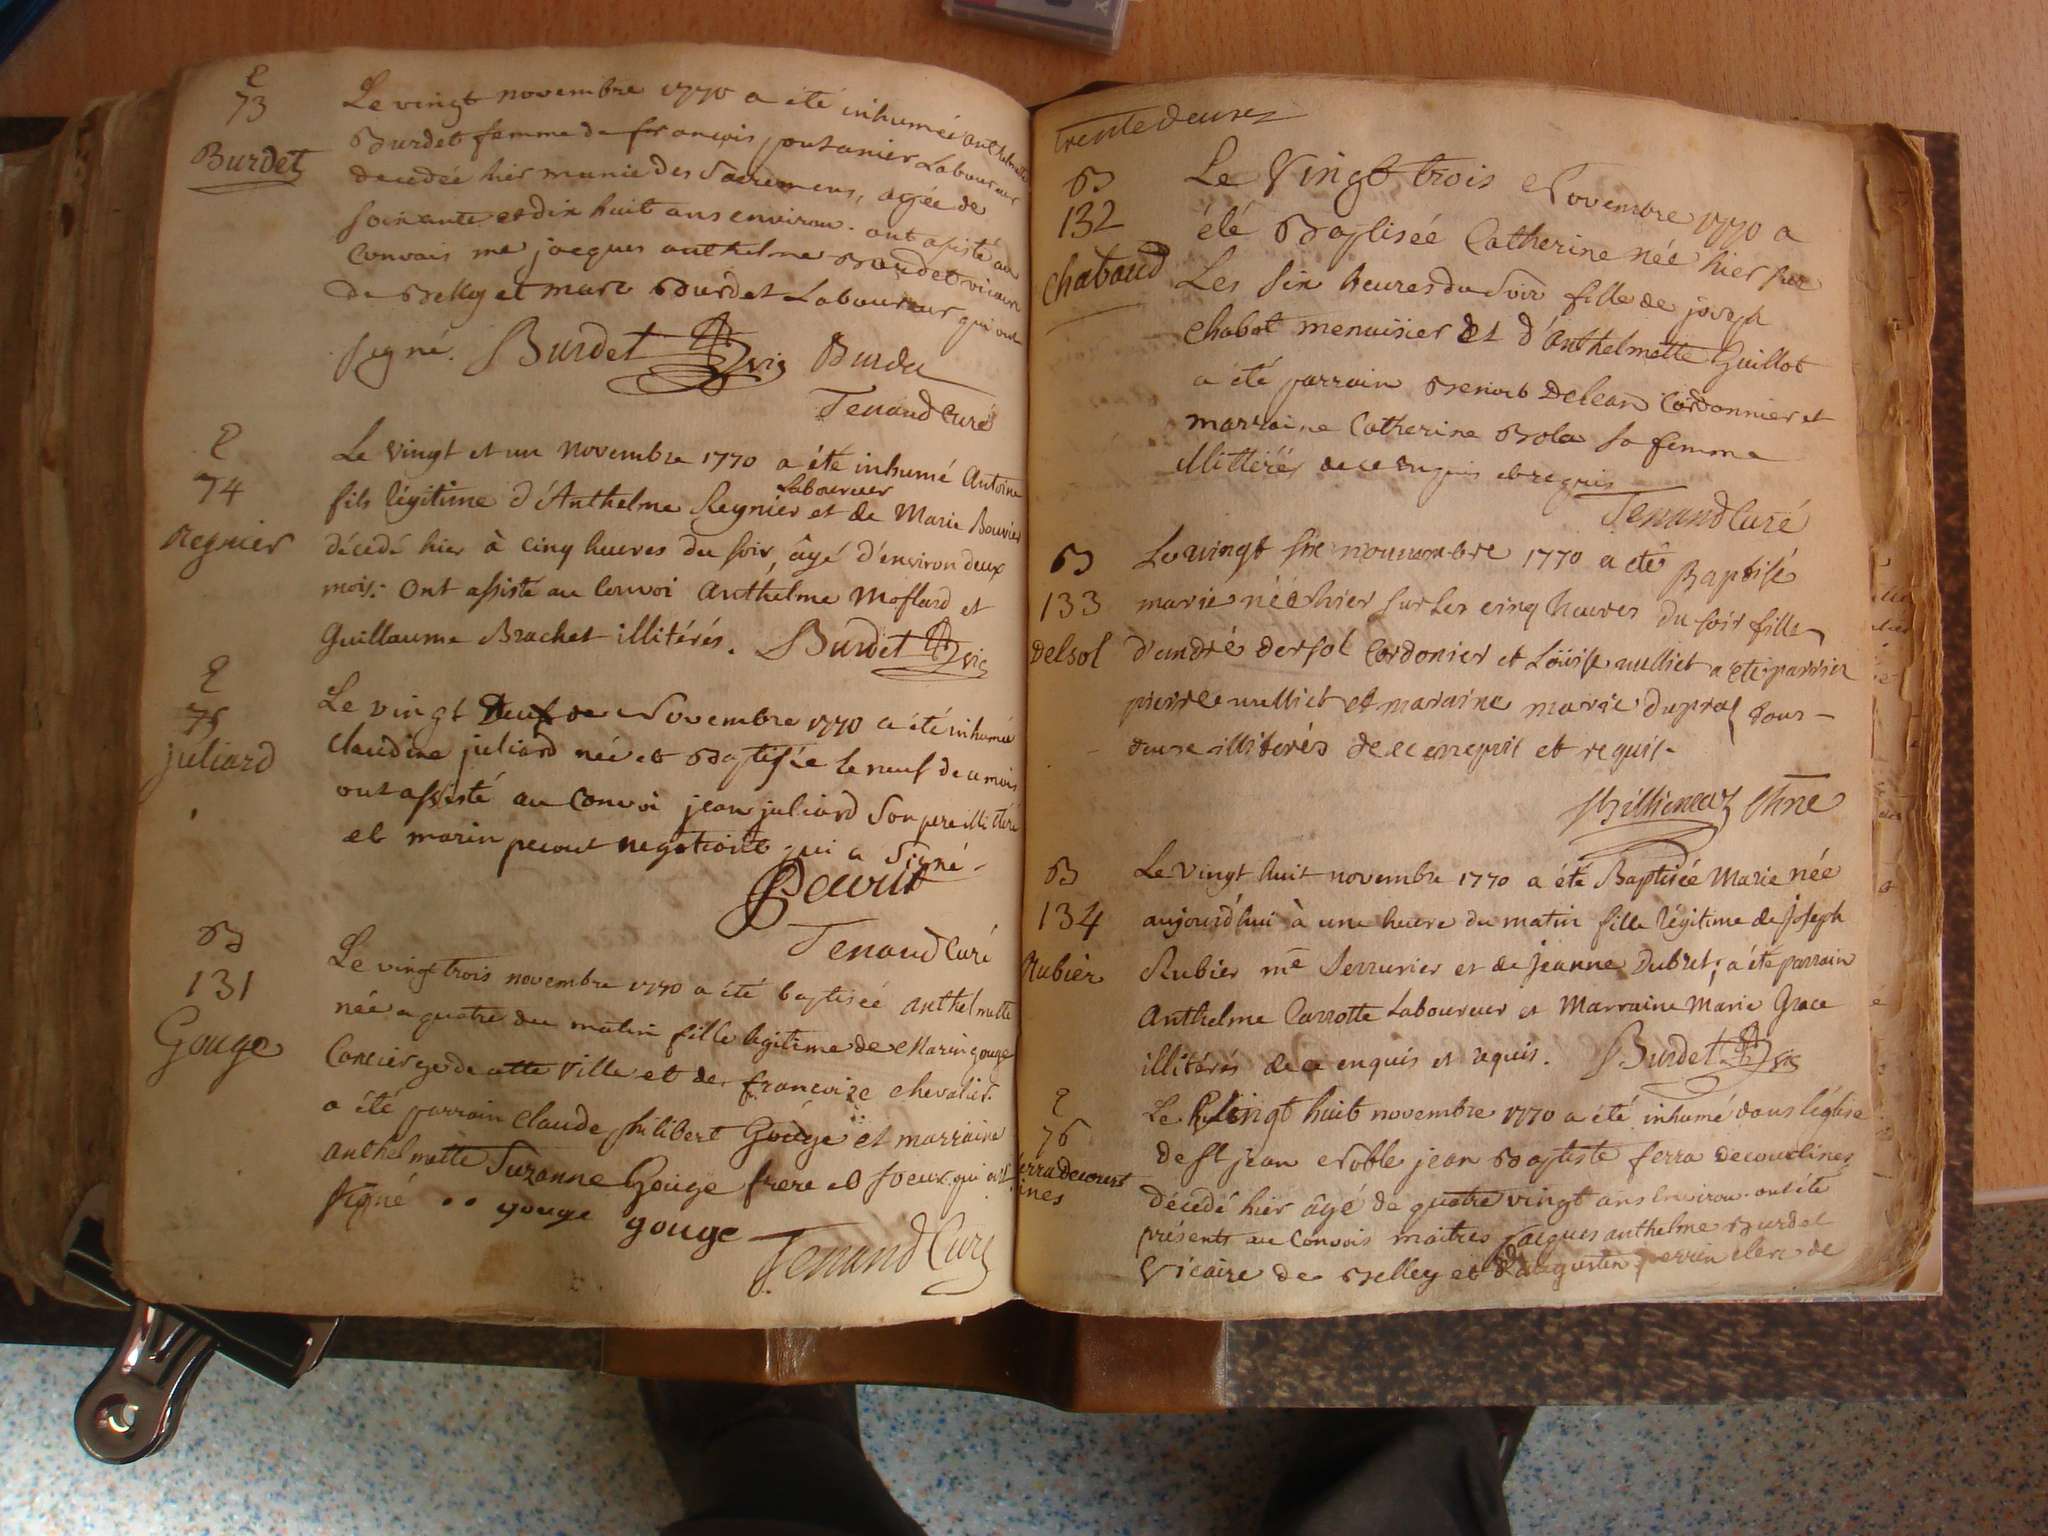 73
Burdet
Le vingt novembre 1770 a été inhumée anthelmette
Burdet femme de françois poutanier Laboureur
decedée hier munie des Sacremens, agée de
soixante et dix huit ans environ. ont assisté au
Convois me jacques anthelme Burdet vicaire
de Belley et marc Burdet Laboureur qui ont
signé. Burdet vic Burdet
Tenand Curé
74
Regnier
Le vingt et un novembre 1770 a été inhumé Antoine
Laboureur
fils légitime d'Anthelme Regnier et de Marie Bouvier
décedé hier à cinq heures du soir, âgé d'environ deux
mois. Ont assisté au Convoi Anthelme Moflard et
Guillaume Brachet illitérés. Burdet vic
75
juliard
Le vingt Novembre 1770 a été inhumée
Claudine juliard née et Baptisée le neuf de ce mois
ont assisté au Convoi jean juliard Son pere illittéré
et marin pecout negotiant qui a Signé
Tenand Curé
B
131
Gouge
Le vingt trois novembre 1770 a été baptisée anthelmette
née a quatre du matin fille légitime de Marin gouge
Concierge de cette ville et de françoise chevalier
a été parrain Claude philibert Gouge et marraine
anthelmette Suzanne Gouge frere et soeur qui ont
signé gouge gouge
Tenand Curé
trente deux
B
132
Chabaud
Le Vingt trois Novembre 1770 a
été Baptisée Catherine née hier sur
Les six heures du soir fille de joseph
Chabot menuisier et d'Anthelmette Guillot
a été parrain Benoit Delean Cordonnier et
marraine Catherine Bola sa femme
illittérés de ce enquis et requis
Tenand Curé
B
133
Delsol
Le vingt six nouvembre 1770 a eté Baptisé
marie née hier sur Les cinq heures du soir fille
d'andré dersol Cordonier et Loüise nulliet a eté parrin
pierre nulliet et maraine marie duprat tous
deux illiterés de ce enquis et requis
B
134
Rubier
Le vingt huit novembre 1770 a été Baptisée Marie née
aujourd'hui à une heure du matin fille légitime de Joseph
Rubier me Serrurier et de Jeanne Dubret; a été parrain
Anthelme Carrotte Laboureur et Marraine Marie Grace
illitérés de ce enquis et requis. Burdet vic
76
ferra decourt
ines
Le Vingt huit novembre 1770 a été inhumé dans l'église
de St jean Noble jean Baptiste ferra decourtines
décedé hier âgé de quatre vingt ans Environ. ont été
présents au Convois maitres Jacques anthelme Burdet
Vicaire de Belley et augustin perrin clerc de